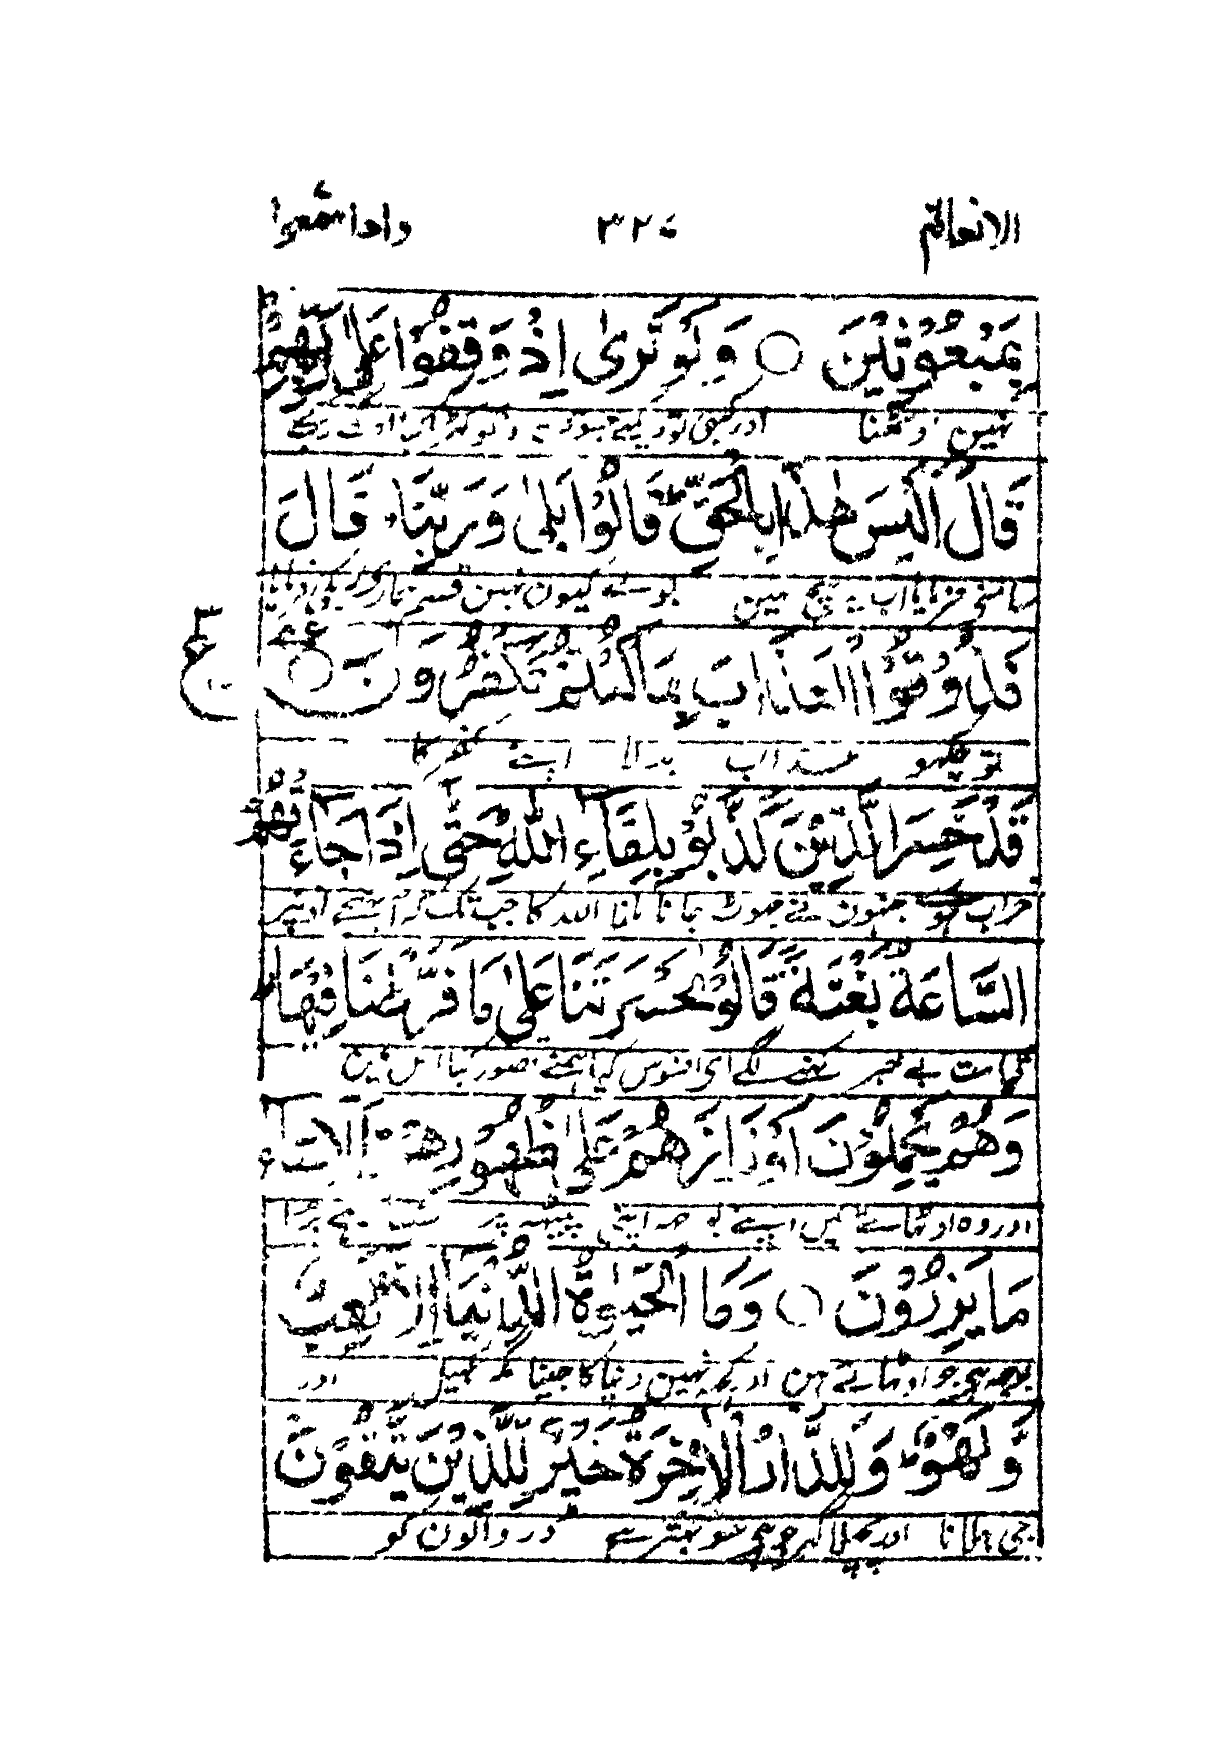 الانعام ٣٢٤ واذا سمعوا
بِمَبْعُوْثِيْنَ ○ وَلَوْ تَرٰى اِذْ وُقِفُوْا عَلٰى رَبِّهِمْ
نہین اوٹھنا اور کبھی تو دیکھے جسوقت
قَالَ اَلَيْسَ هٰذَا بِالْحَقِّ قَالُوْا بَلٰى وَرَبِّنَا قَالَ
سامنے فرمایا اب یہ سچ نہین بولے کیون نہین قسم ہمارے رب کی فرمایا
فَذُوْقُوا الْعَذَابَ بِمَا كُنْتُمْ تَكْفُرُوْنَ ○
تو چکھو عذاب بدلا اپنے کفر کا
قَدْ خَسِرَ الَّذِيْنَ كَذَّبُوْا بِلِقَاءِ اللّٰهِ حَتّٰى اِذَا جَاءَتْهُمُ
خراب ہوے جنہون نے جھوٹ جانا ملنا اللہ کا جب تک کہ آ پہنچے اونپر
السَّاعَةُ بَغْتَةً قَالُوْا يٰحَسْرَتَنَا عَلٰى مَا فَرَّطْنَا فِيْهَا
قیامت بے خبر کہنے لگے ای افسوس کیا ہمنے قصور کیا اس مین
وَهُمْ يَحْمِلُوْنَ اَوْزَارَهُمْ عَلٰى ظُهُوْرِهِمْ اَلَا سَاءَ
اور وہ اوٹھاتے ہین اپنے بوجھ اپنی پیٹھ پر سنتا ہے برا
مَا يَزِرُوْنَ ○ وَمَا الْحَيٰوةُ الدُّنْيَا اِلَّا لَعِبٌ
بوجھ ہے جو اوٹھاتے ہین اور کچھ نہین دنیا کا جینا مگر کھیل اور
وَّلَهْوٌ وَلَلدَّارُ الْاٰخِرَةُ خَيْرٌ لِّلَّذِيْنَ يَتَّقُوْنَ
جی بہلانا اور پچھلا گھر جو ہے سو بہتر ہے ڈر والون کو